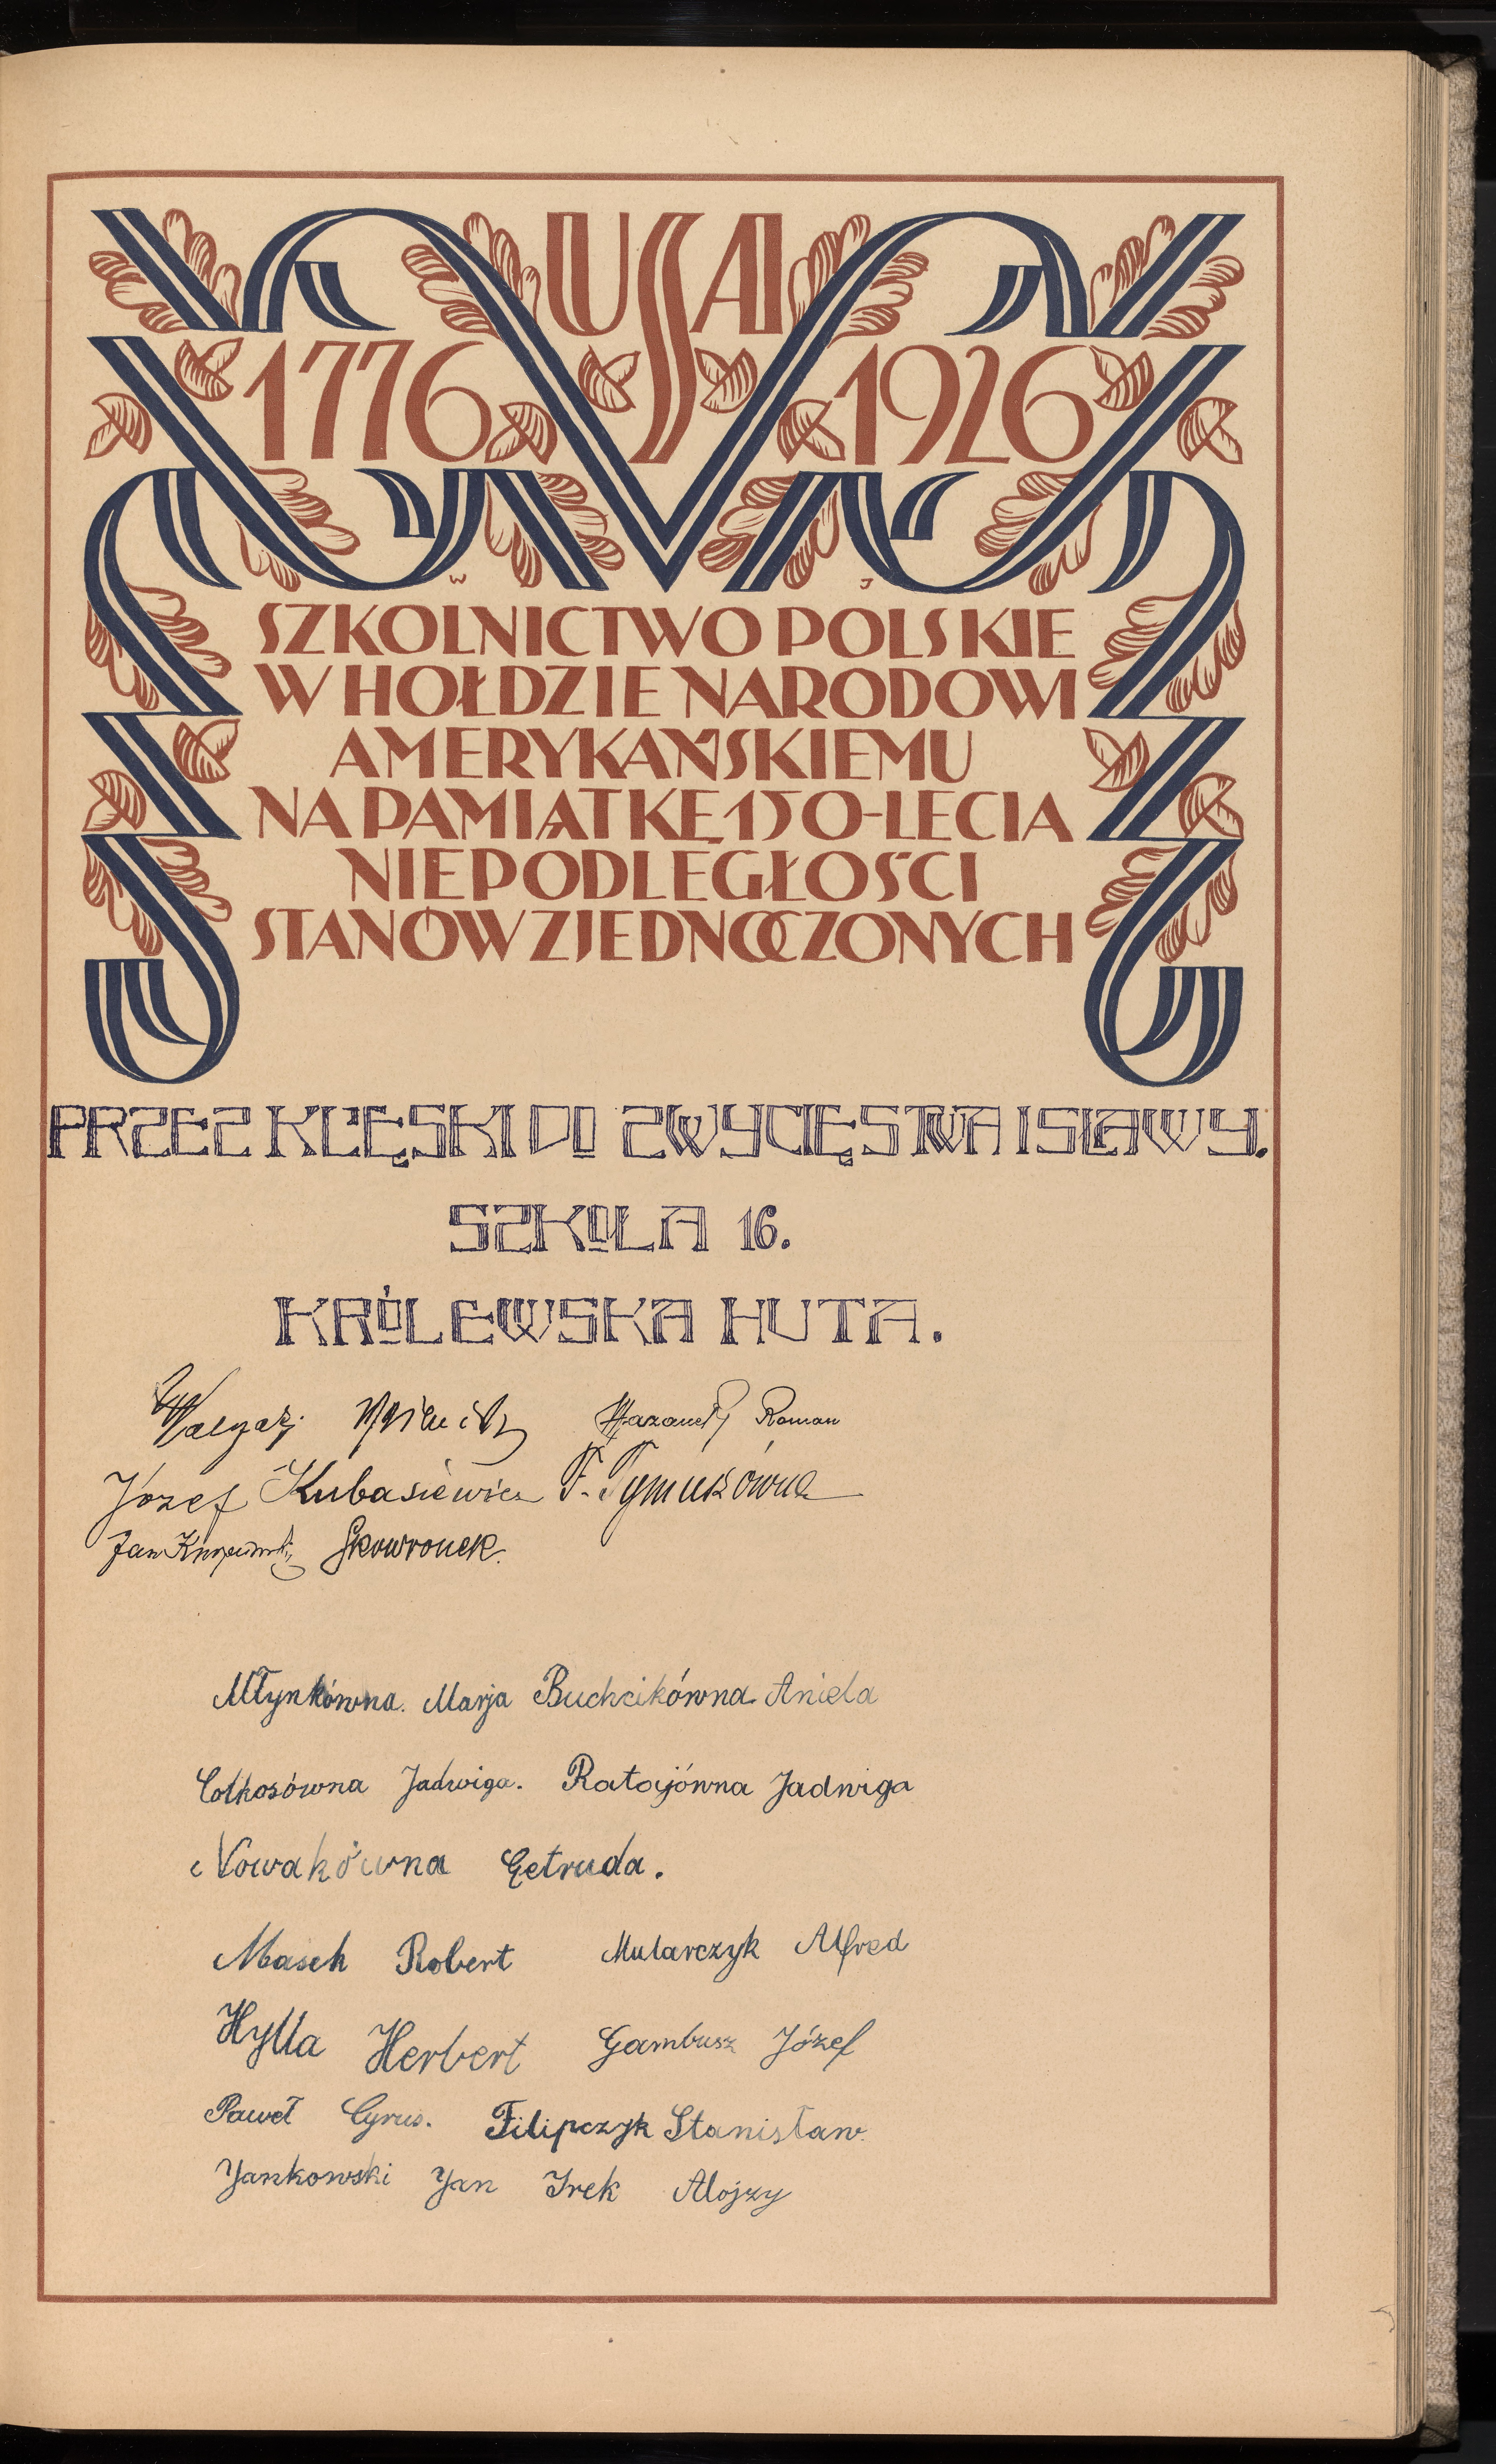 USA
1776 1926
W J
SZKOLNICTWO POLSKIE
W HOŁDZIE NARODOWI
AMERYKAŃSKIEMU
NA PAMIĄTKĘ 150-LECIA
NIEPODLEGŁOŚCI
STANÓW ZJEDNOCZONYCH
PRZEZ KLĘSKI DO ZWYCIĘSTWA I SŁAWY.
SZKOŁA 16.
KRÓLEWSKA HUTA.
Roman
Józef Kubasiewicz F. Tymukówna
Jan Skowronek.
Młynkówna. Marja Buchcikówna Aniela
Cołkosówna Jadwiga. Ratajówna Jadwiga
Nowakówna Getruda.
Masek Robert Mularczyk Alfred
Hylla Herbert Gambusz Józef
Paweł Cyrus. Filipczyk Stanisław.
Jankowski Jan Irek Alojzy